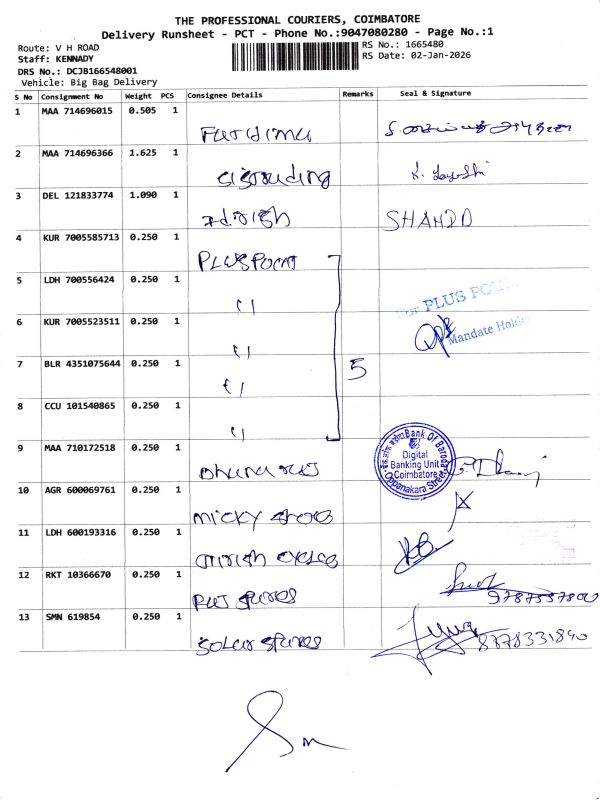 THE PROFESSIONAL COURIERS, COIMBATORE
Delivery Runsheet - PCT - Phone No.:9047080280 - Page No.:1
Route: V H ROAD
RS No.: 1665480
Staff: KENNADY
RS Date: 02-Jan-2026
DRS No.: DCJB166548001
Vehicle: Big Bag Delivery
S No Consignment No Weight PCS Consignee Details Remarks Seal & Signature
1 MAA 714696015 0.505 1
2 MAA 714696366 1.625 1
3 DEL 121833774 1.090 1 SHAHID
4 KUR 7005585713 0.250 1 PLUS POINT
5 LDH 700556424 0.250 1 "
For PLUS POINT
6 KUR 7005523511 0.250 1 "
Mandate Holder
7 BLR 4351075644 0.250 1 " 5
8 CCU 101540865 0.250 1 "
Bank Of Baroda
Digital
Banking Unit
Coimbatore
Oppanakara Street
9 MAA 710172518 0.250 1
10 AGR 600069761 0.250 1 micky
11 LDH 600193316 0.250 1 cycles
12 RKT 10366670 0.250 1 spares
9787557800
13 SMN 619854 0.250 1 Solar spares
8778331840